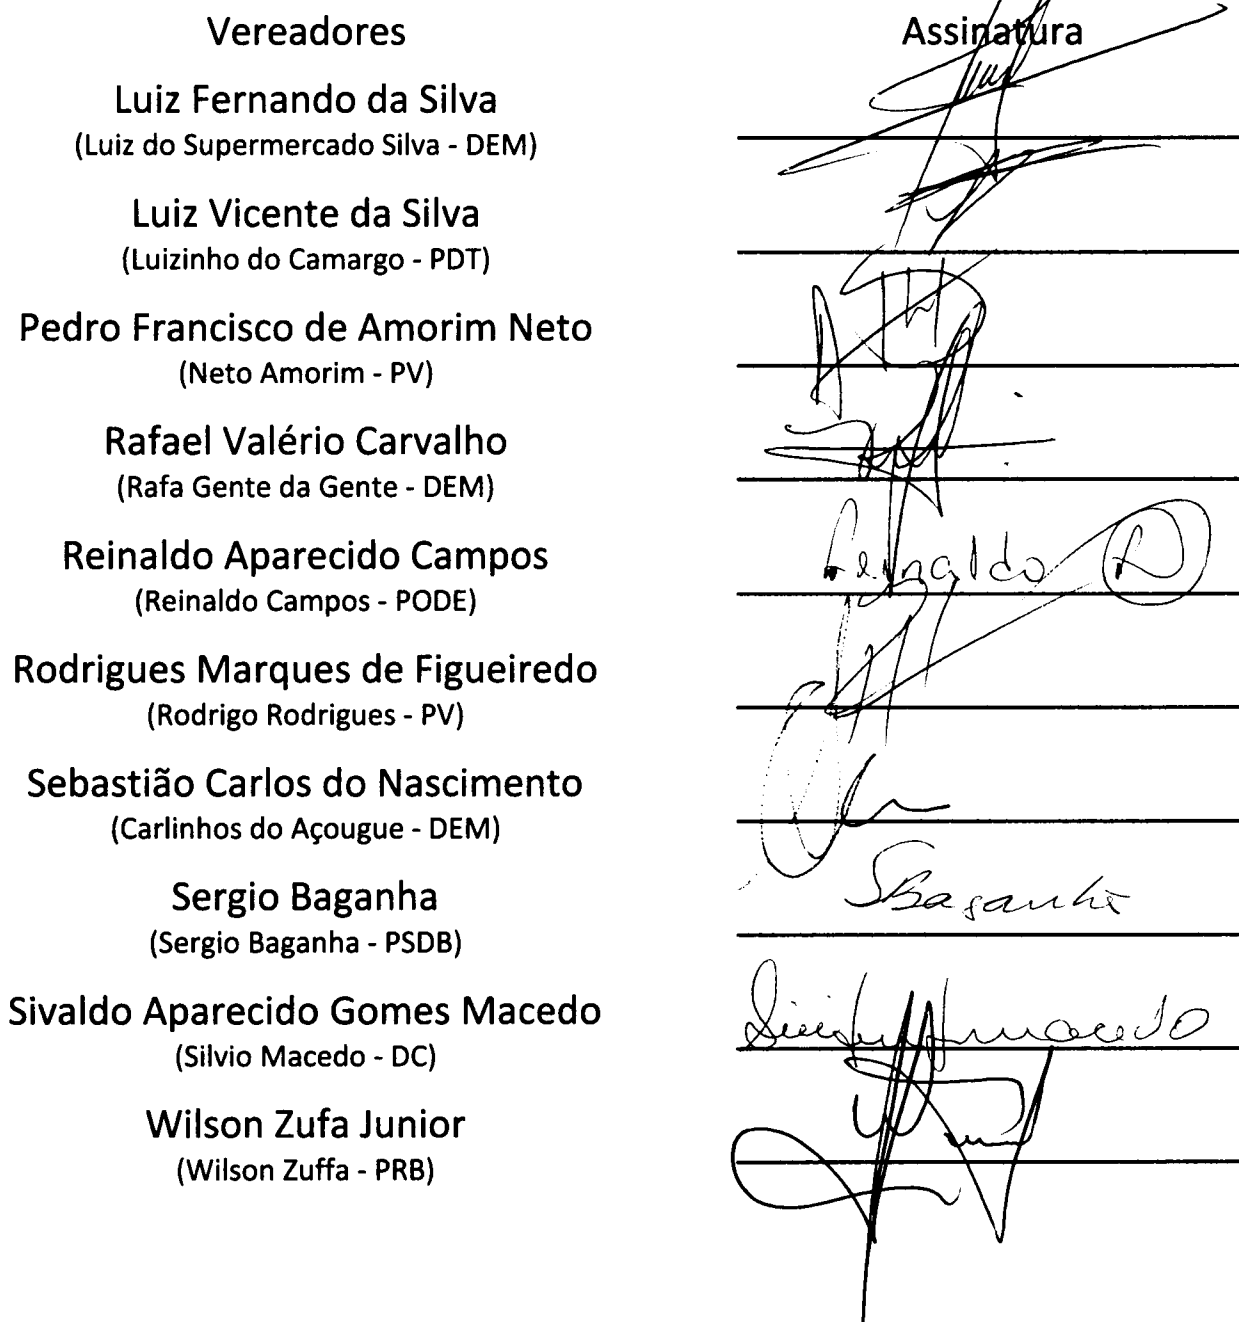 Vereadores Assinatura
Luiz Fernando da Silva
(Luiz do Supermercado Silva - DEM)
Luiz Vicente da Silva
(Luizinho do Camargo - PDT)
Pedro Francisco de Amorim Neto
(Neto Amorim - PV)
Rafael Valério Carvalho
(Rafa Gente da Gente - DEM)
Reinaldo Aparecido Campos
Reinaldo
(Reinaldo Campos - PODE)
Rodrigues Marques de Figueiredo
(Rodrigo Rodrigues - PV)
Sebastião Carlos do Nascimento
(Carlinhos do Açougue - DEM)
Sergio Baganha SBaganha
(Sergio Baganha - PSDB)
Sivaldo Aparecido Gomes Macedo
macedo
(Silvio Macedo - DC)
Wilson Zufa Junior
(Wilson Zuffa - PRB)